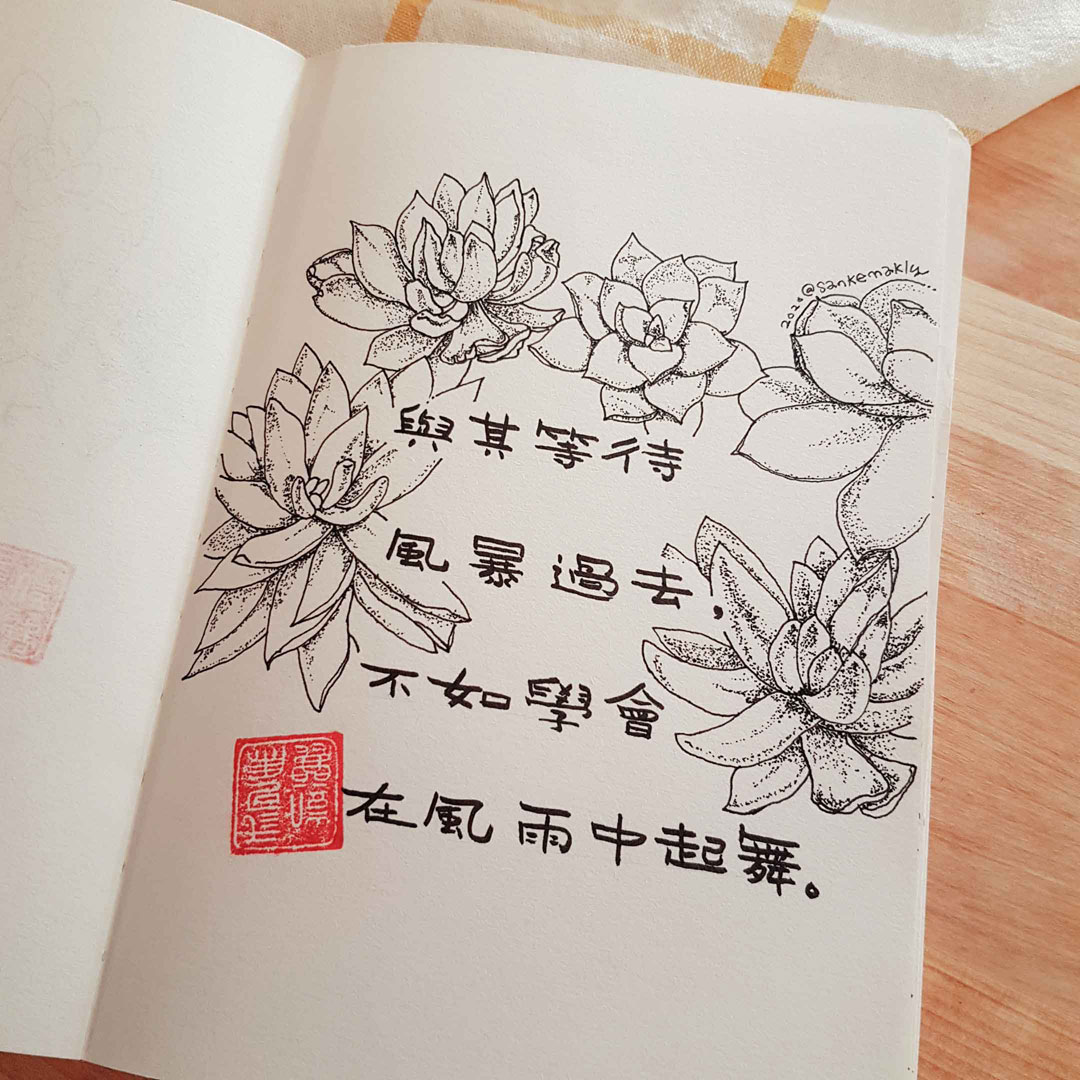 2020 @sankemakly
與其等待
風暴過去,
不如學會
在風雨中起舞。